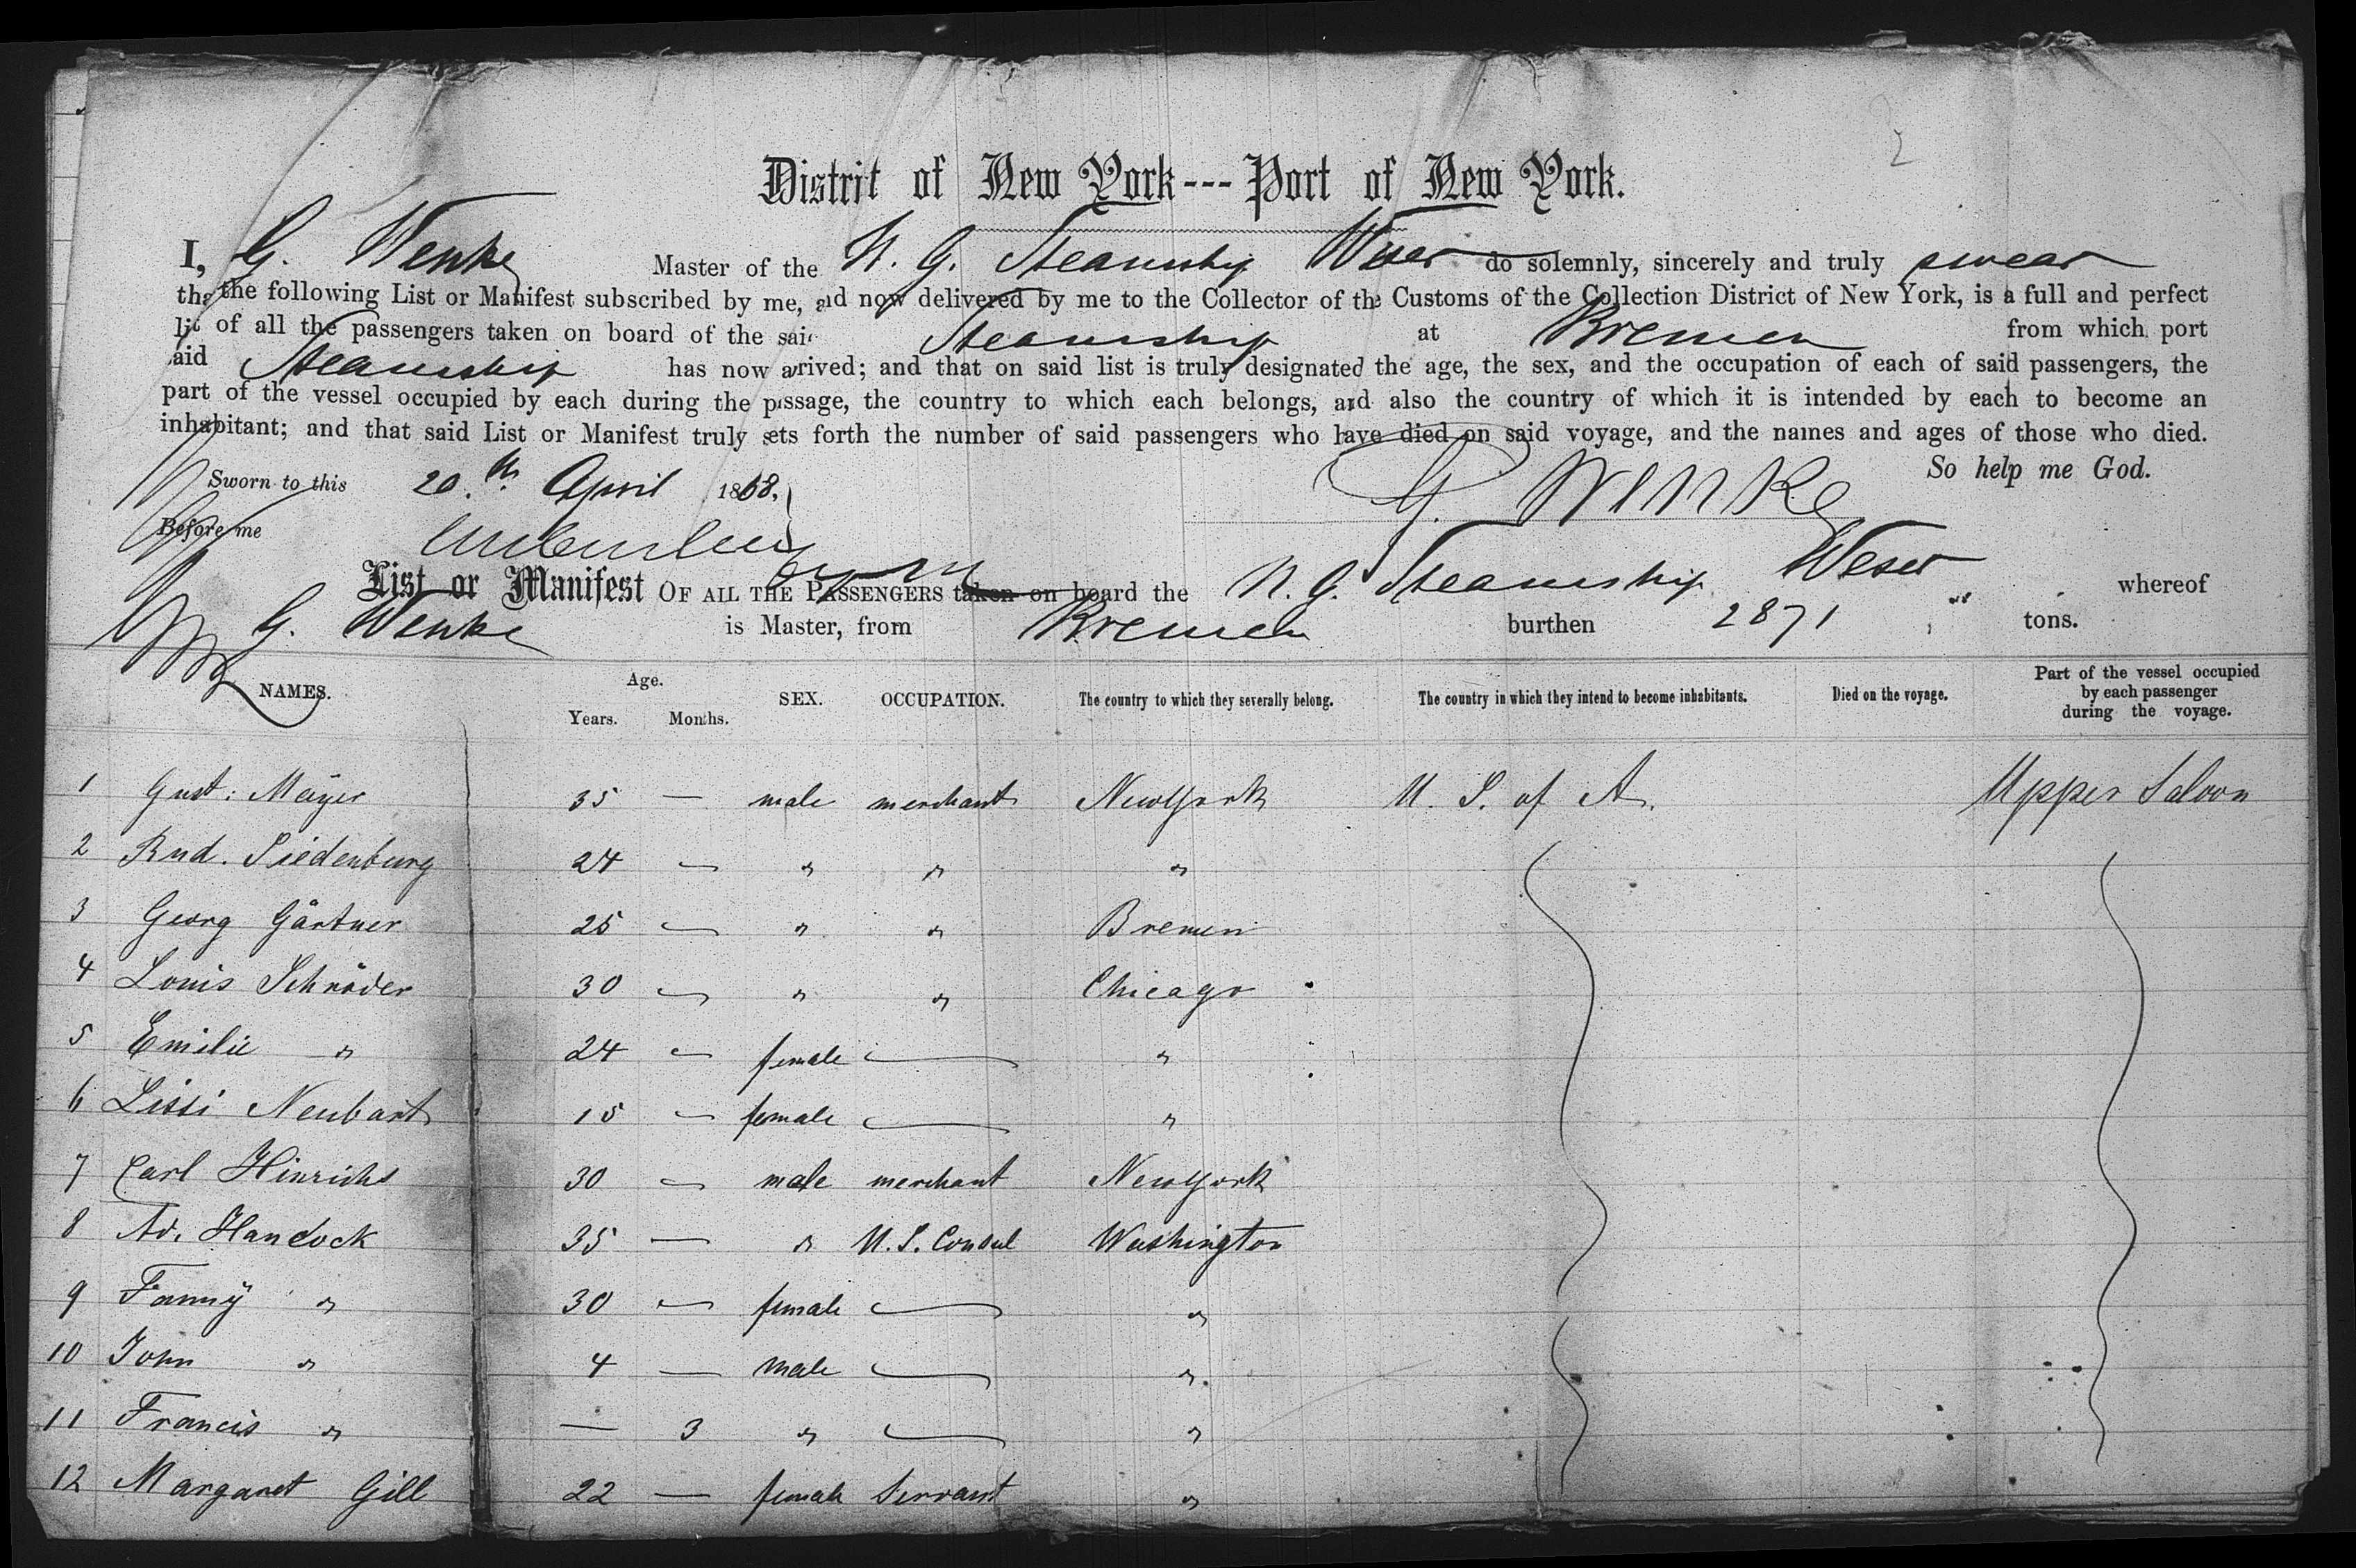 Distrit of New York --- Port of New York.
I, G. Wenke Master of the N. G. Steamship Weser do solemnly, sincerely and truly swear
the following List or Manifest subscribed by me, and now delivered by me to the Collector of the Customs of the Collection District of New York, is a full and perfect
of all the passengers taken on board of the said Steamship at Bremen from which port
said Steamship has now arrived; and that on said list is truly designated the age, the sex, and the occupation of each of said passengers, the
part of the vessel occupied by each during the passage, the country to which each belongs, and also the country of which it is intended by each to become an
inhabitant; and that said List or Manifest truly sets forth the number of said passengers who have died on said voyage, and the names and ages of those who died.
So help me God.
Sworn to this 20.th April 1868. G. Wenke
Before me
List or Manifest OF ALL THE PASSENGERS taken on board the N. G. Steamship Weser whereof
G. Wenke is Master, from Bremen burthen 2871 tons.
NAMES. Age. Years. Months. SEX. OCCUPATION. The country to which they severally belong. The country in which they intend to become inhabitants. Died on the voyage. Part of the vessel occupied by each passenger during the voyage.
1 Gust: Meÿer 35 — male merchant NewYork U. S. of A. Upper Saloon
2 Rud. Siedenburg 24 — " " "
3 Georg Gärtner 25 — " " Bremen
4 Louis Schröder 30 — " " Chicago
5 Emilie " 24 — female — "
6 Lissi Neubart 15 — female — "
7 Carl Hinrichs 30 — male merchant NewYork
8 Ad. Hancock 35 — " U. S. Consul Washington
9 Fannÿ " 30 — female — "
10 John " 4 — male — "
11 Francis " — 3 " — "
12 Margaret Gill 22 — female Servant "